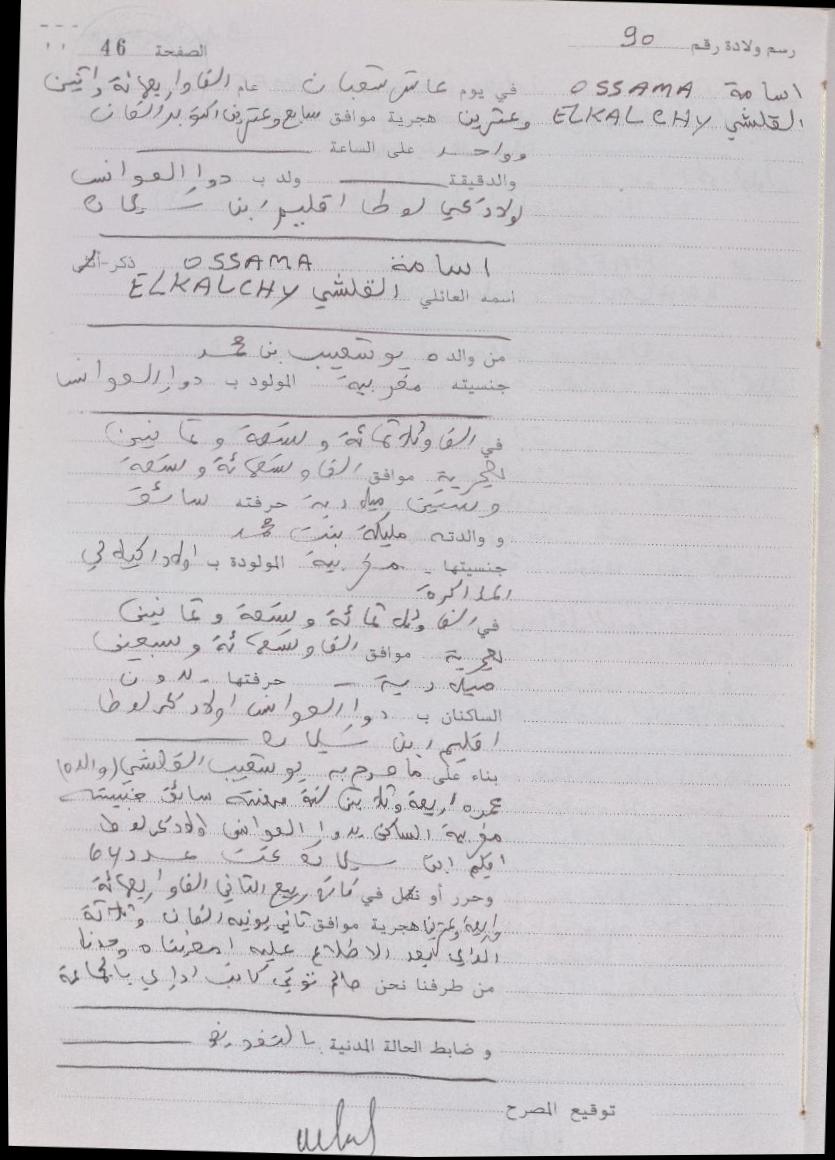 رسم ولادة رقم 90
الصفحة 46
اسامة OSSAMA في يوم عاشر شعبان عام الف واربعمائة واثنين
القلشي ELKALCHY وعشرين هجرية موافق سابع وعشرين اكتوبر الفان
وواحد على الساعة
والدقيقة ولد ب دوار العوانس
اولاد لوطا اقليم ابن سليمان
اسامة OSSAMA ذكر-أنثى
اسمه العائلي القلشي ELKALCHY
من والده بوشعيب بن محمد
جنسيته مغربية المولود ب دوار العوانس
في الف وثلاثمائة وتسعة وثمانين
هجرية موافق الف وتسعمائة وتسعة
وستين ميلادية حرفته سائق
و والدته مليكة بنت محمد
جنسيتها مغربية المولودة ب اولاد
المذاكرة
في الف وثلاثمائة وتسعة وثمانين
هجرية موافق الف وتسعمائة وسبعين
ميلادية حرفتها بدون
الساكنان ب دوار العوانس اولاد لوطا
اقليم ابن سليمان
بناء على ما صرح به بوشعيب القلشي (والده)
عمره اربعة وثلاثين سنة مهنته سائق جنسيته
مغربية الساكن بدوار العوانس اولاد لوطا
ابن سليمان تحت عدد
وحرر أو نقل في ربيع الثاني الف واربعمائة
واربعة وعشرين هجرية موافق ثاني يونيه الفان وثلاثة
الذي بعد الاطلاع عليه امضيناه وحدنا
من طرفنا نحن كاتب اداري بالجماعة
و ضابط الحالة المدنية بالتفويض
توقيع المصرح